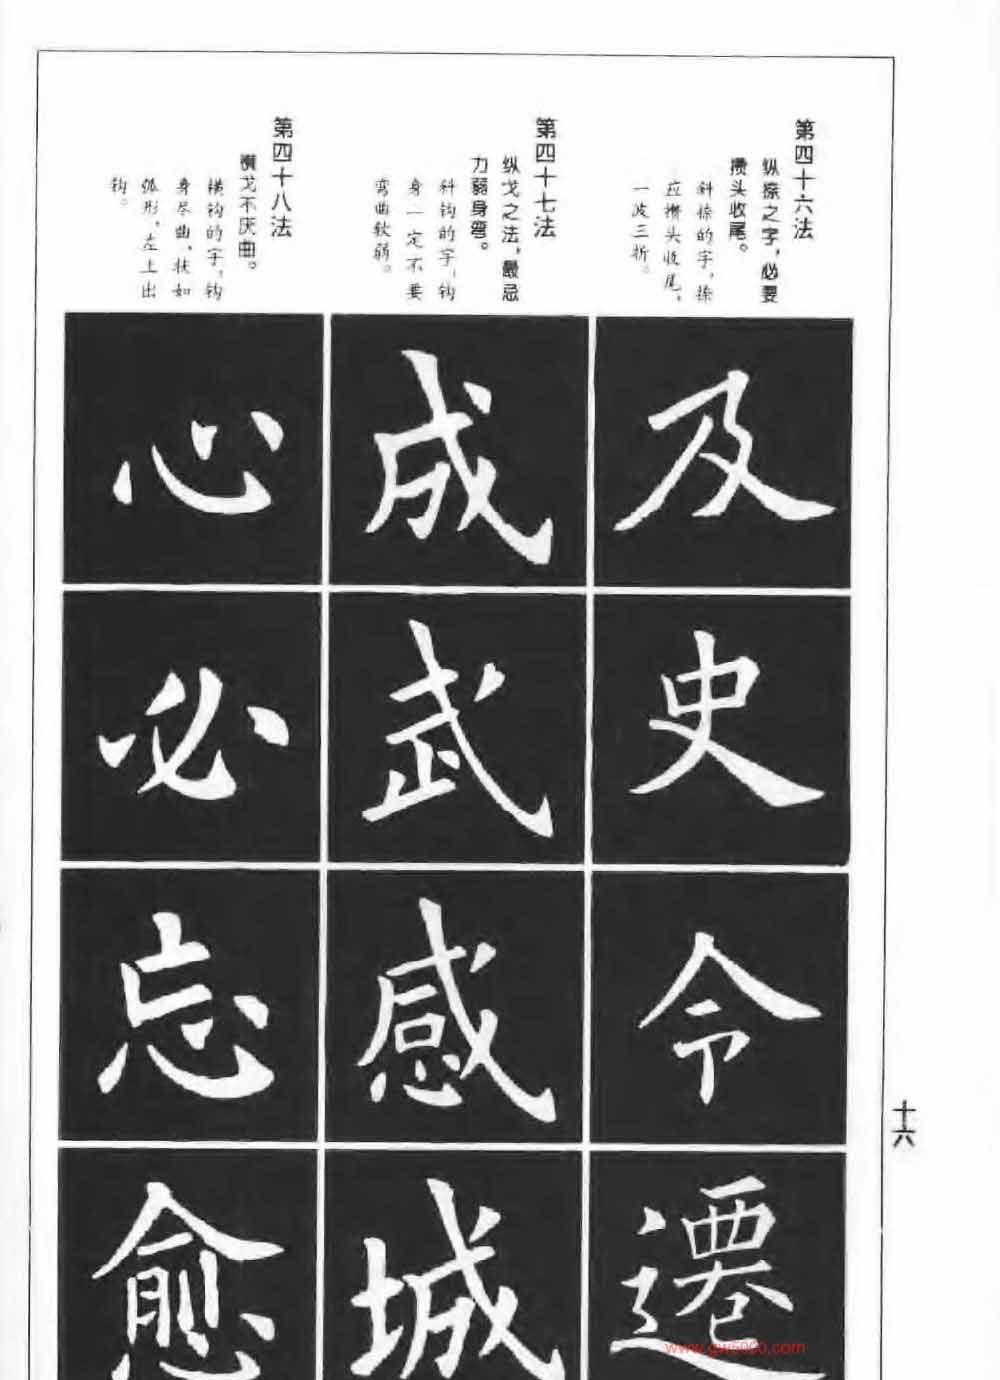 第四十六法
纵捺之字，必要
攒头收尾。
斜捺的字，捺
应攒头收尾，
一波三折。
及
史
令
遷
第四十七法
纵戈之法，最忌
力弱身弯。
斜钩的字，钩
身一定不要
弯曲软弱。
成
武
感
城
第四十八法
横戈不厌曲。
横钩的字，钩
身尽曲，状如
弧形，左上出
钩。
心
必
忘
愈
十六
www.gw5000.com